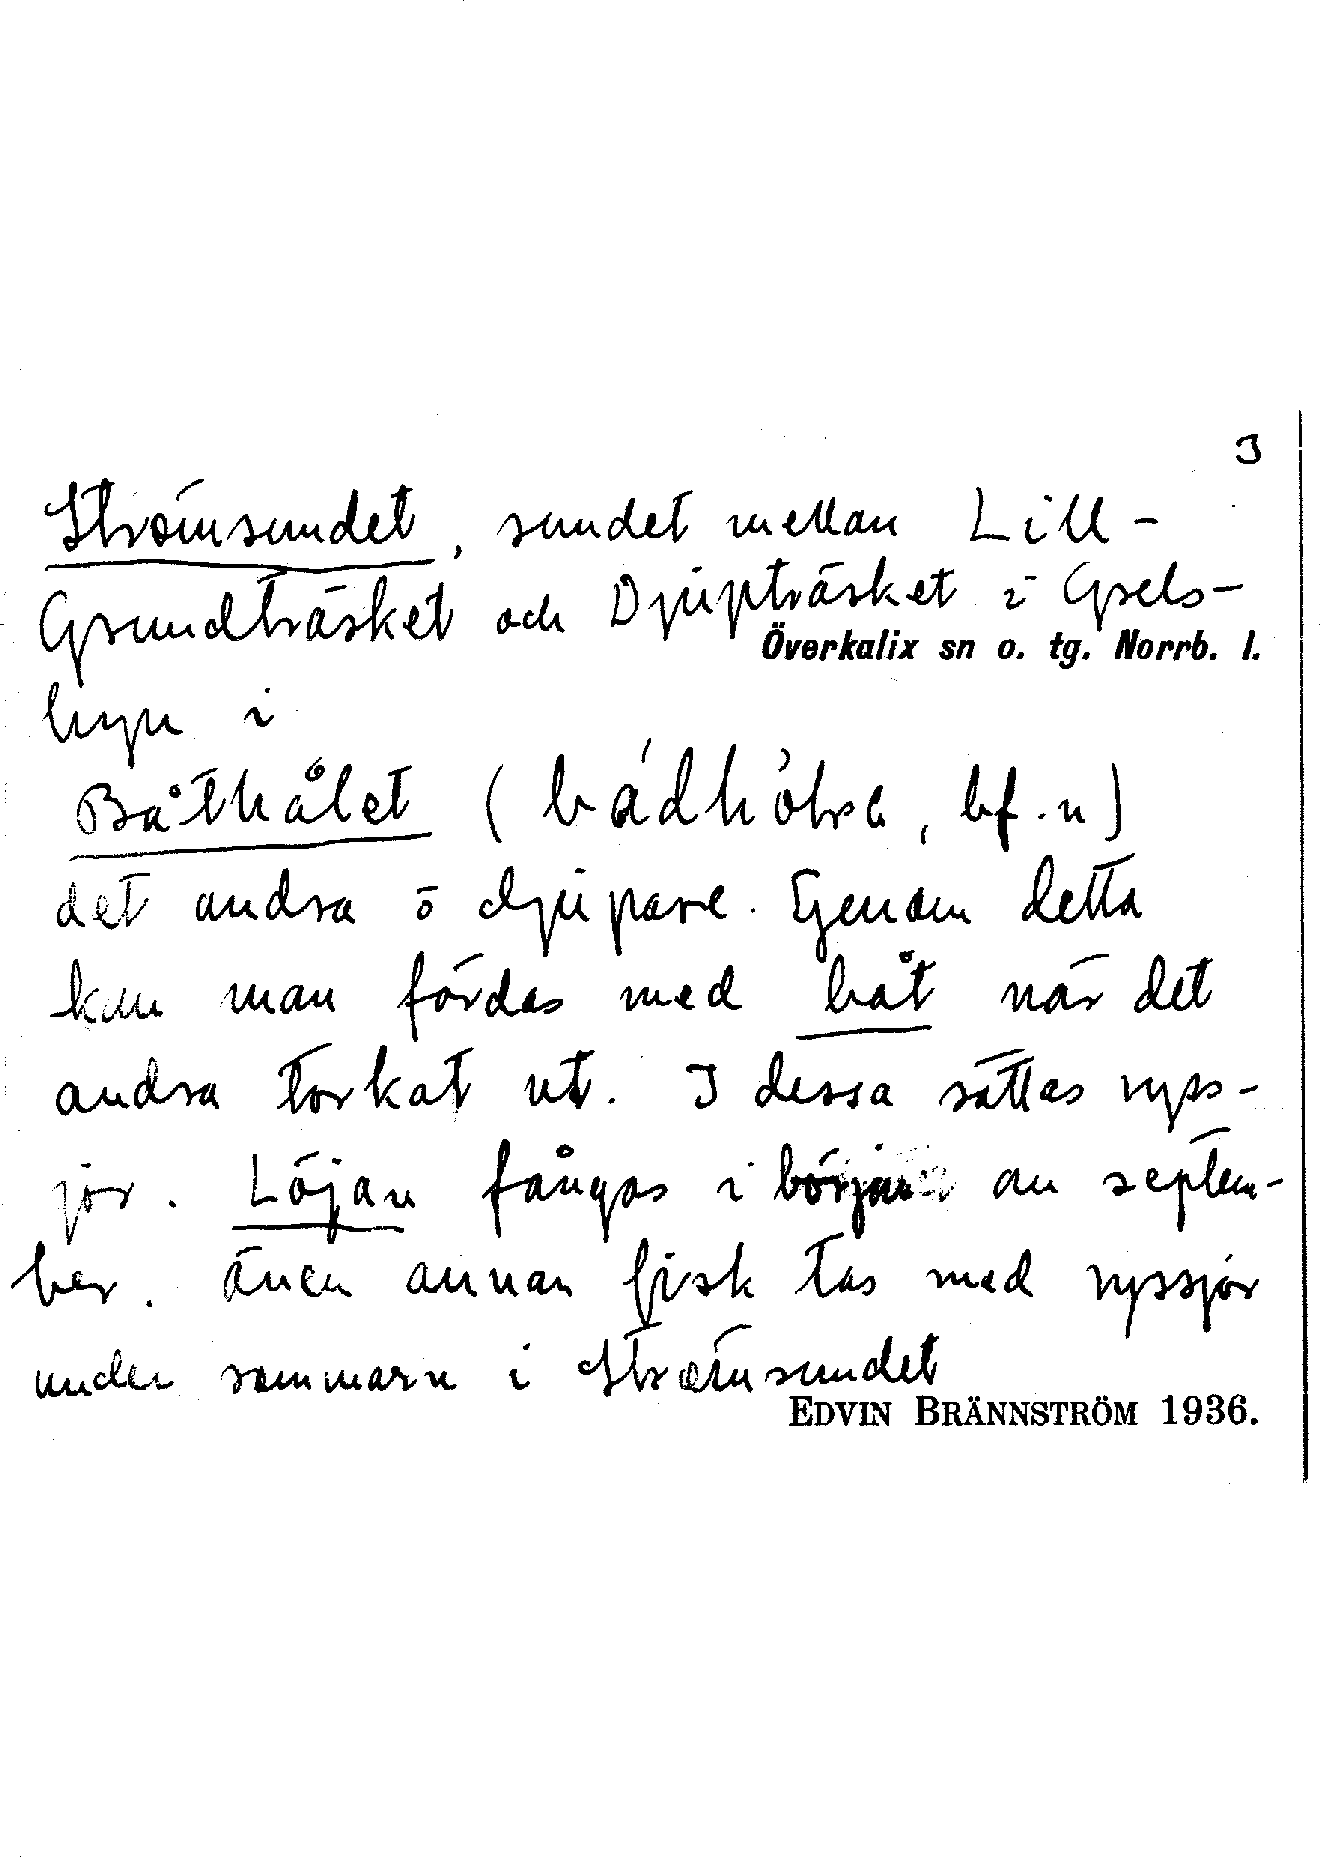 3
Strömsundet, sundet mellan Lill-
Grundträsket och Djupträsket i Gsels-
Överkalix sn o. tg. Norrb. l.
byn i
Båthålet (bf.n)
det andra ö djupare. Genom detta
kan man färdas med båt när det
andra torkat ut. I dessa sättas ryss-
jor. Löjan fångas i början av septem-
ber. även annan fisk tas med ryssjor
under sommarn i Strömsundet
EDVIN BRÄNNSTRÖM 1936.